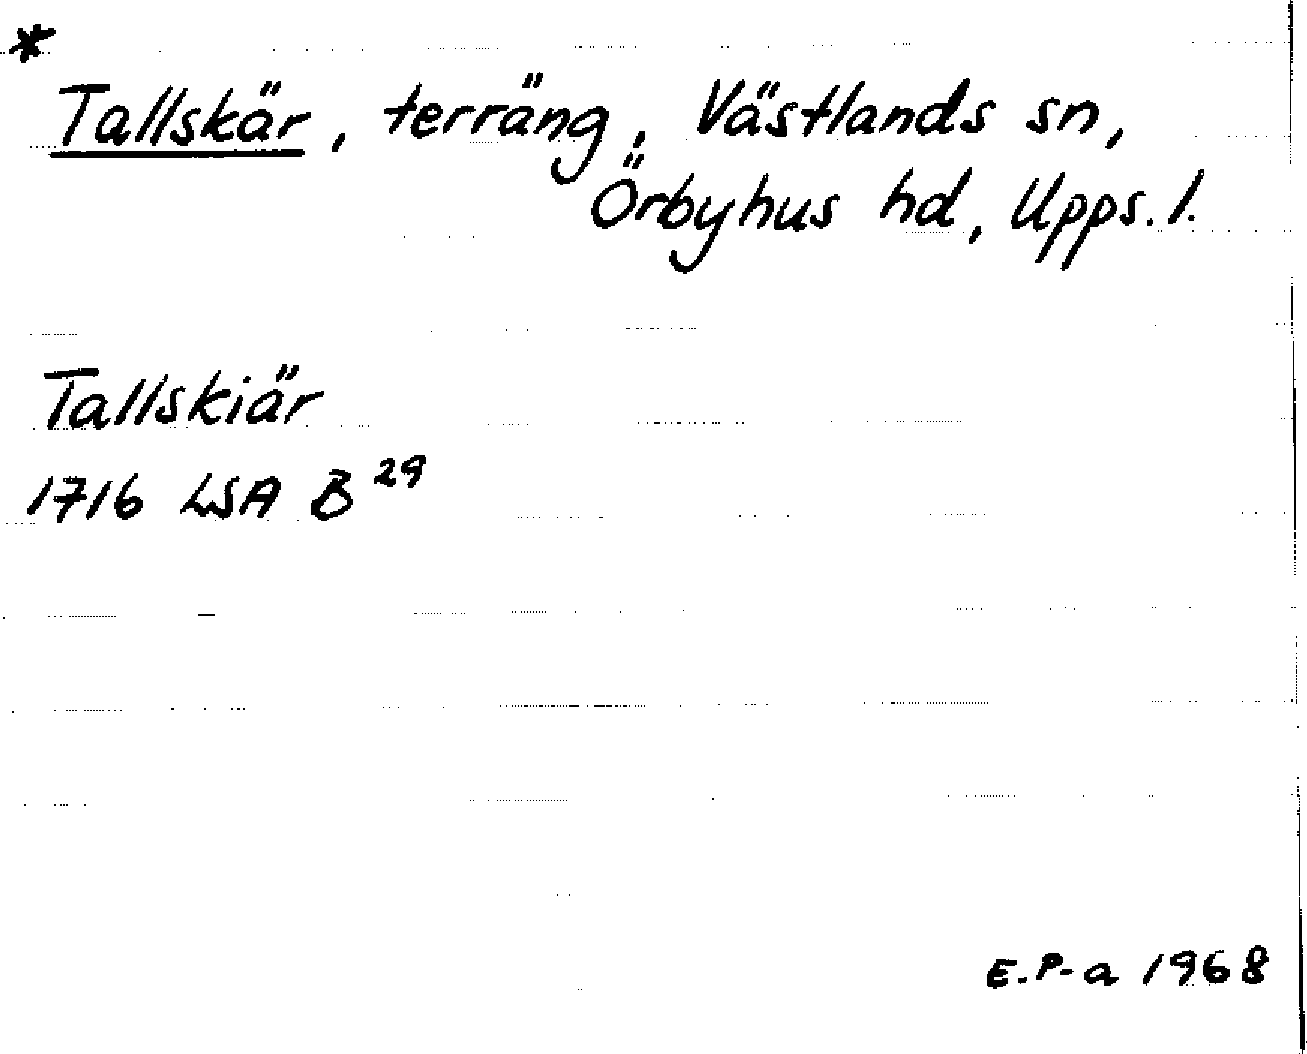 *
Tallskär, terräng, Västlands sn,
Örbyhus hd, Upps. l.
Tallskiär
1716 LSA B 29
E.P-a 1968